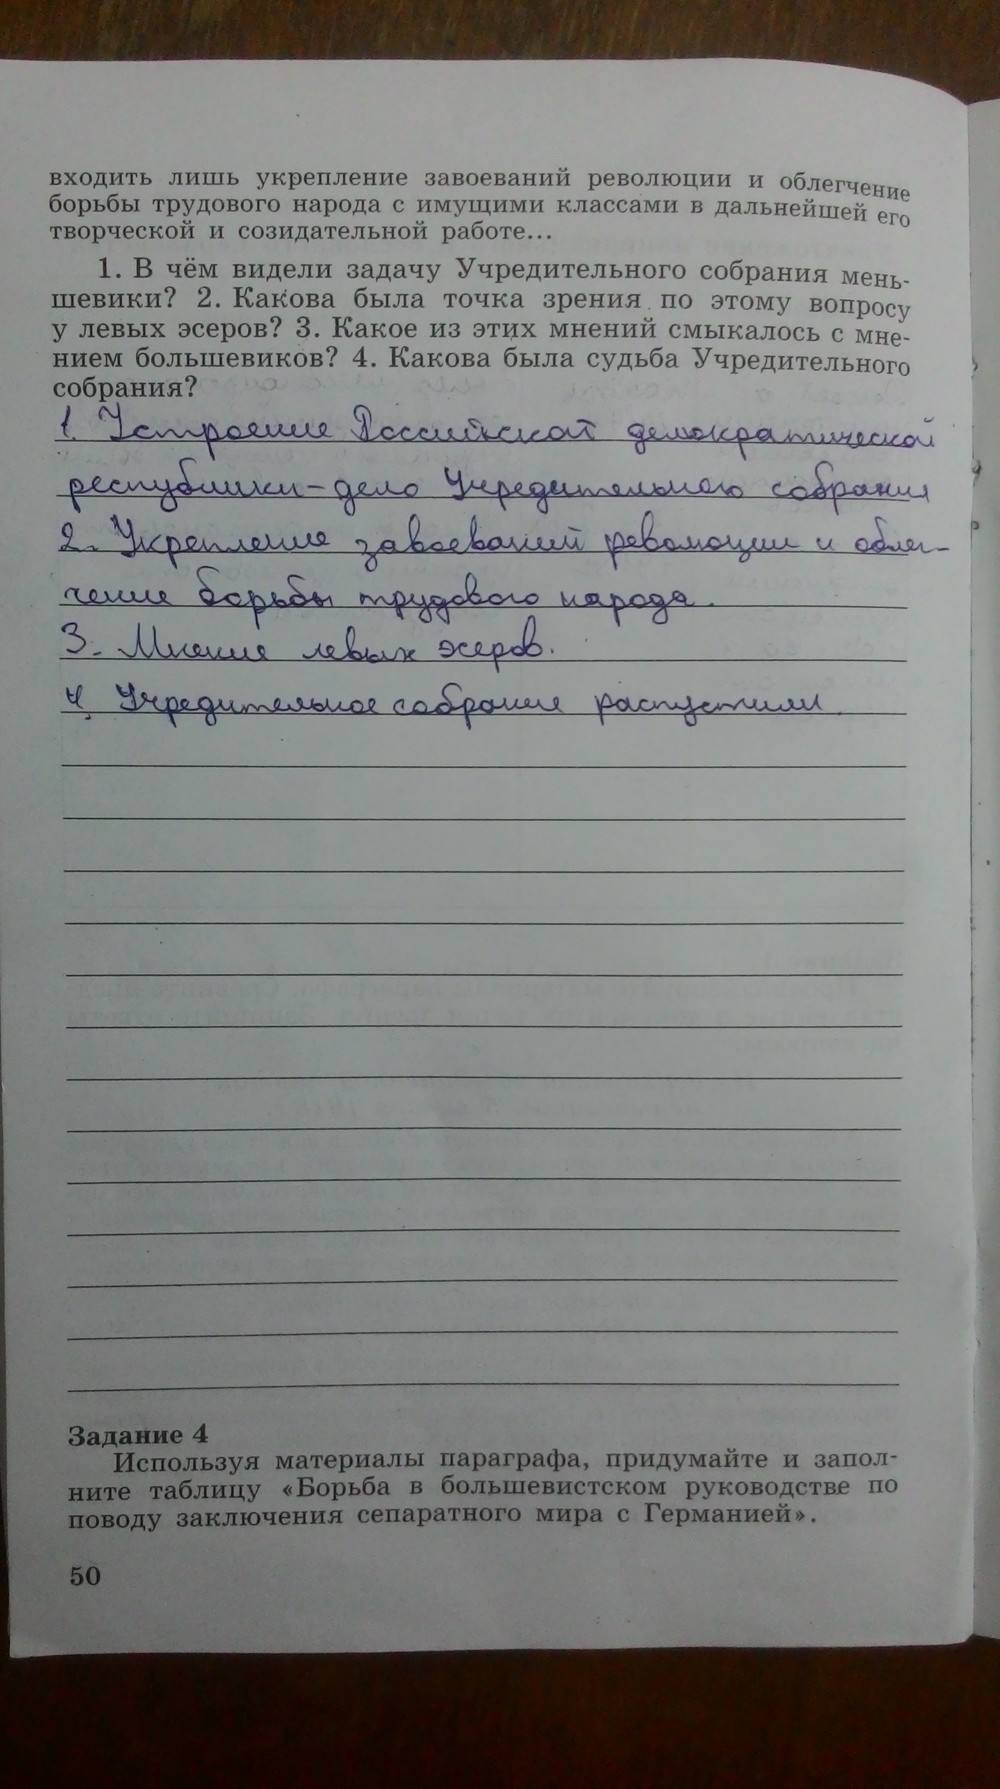 входить лишь укрепление завоеваний революции и облегчение
борьбы трудового народа с имущими классами в дальнейшей его
творческой и созидательной работе...
1. В чём видели задачу Учредительного собрания мень-
шевики? 2. Какова была точка зрения по этому вопросу
у левых эсеров? 3. Какое из этих мнений смыкалось с мне-
нием большевиков? 4. Какова была судьба Учредительного
собрания?
1. Устроение Российской демократической
республики - дело Учредительного собрания
2. Укрепление завоеваний революции и облег-
чение борьбы трудового народа.
3. Мнение левых эсеров.
4. Учредительное собрание распустили.
Задание 4
Используя материалы параграфа, придумайте и запол-
ните таблицу «Борьба в большевистском руководстве по
поводу заключения сепаратного мира с Германией».
50